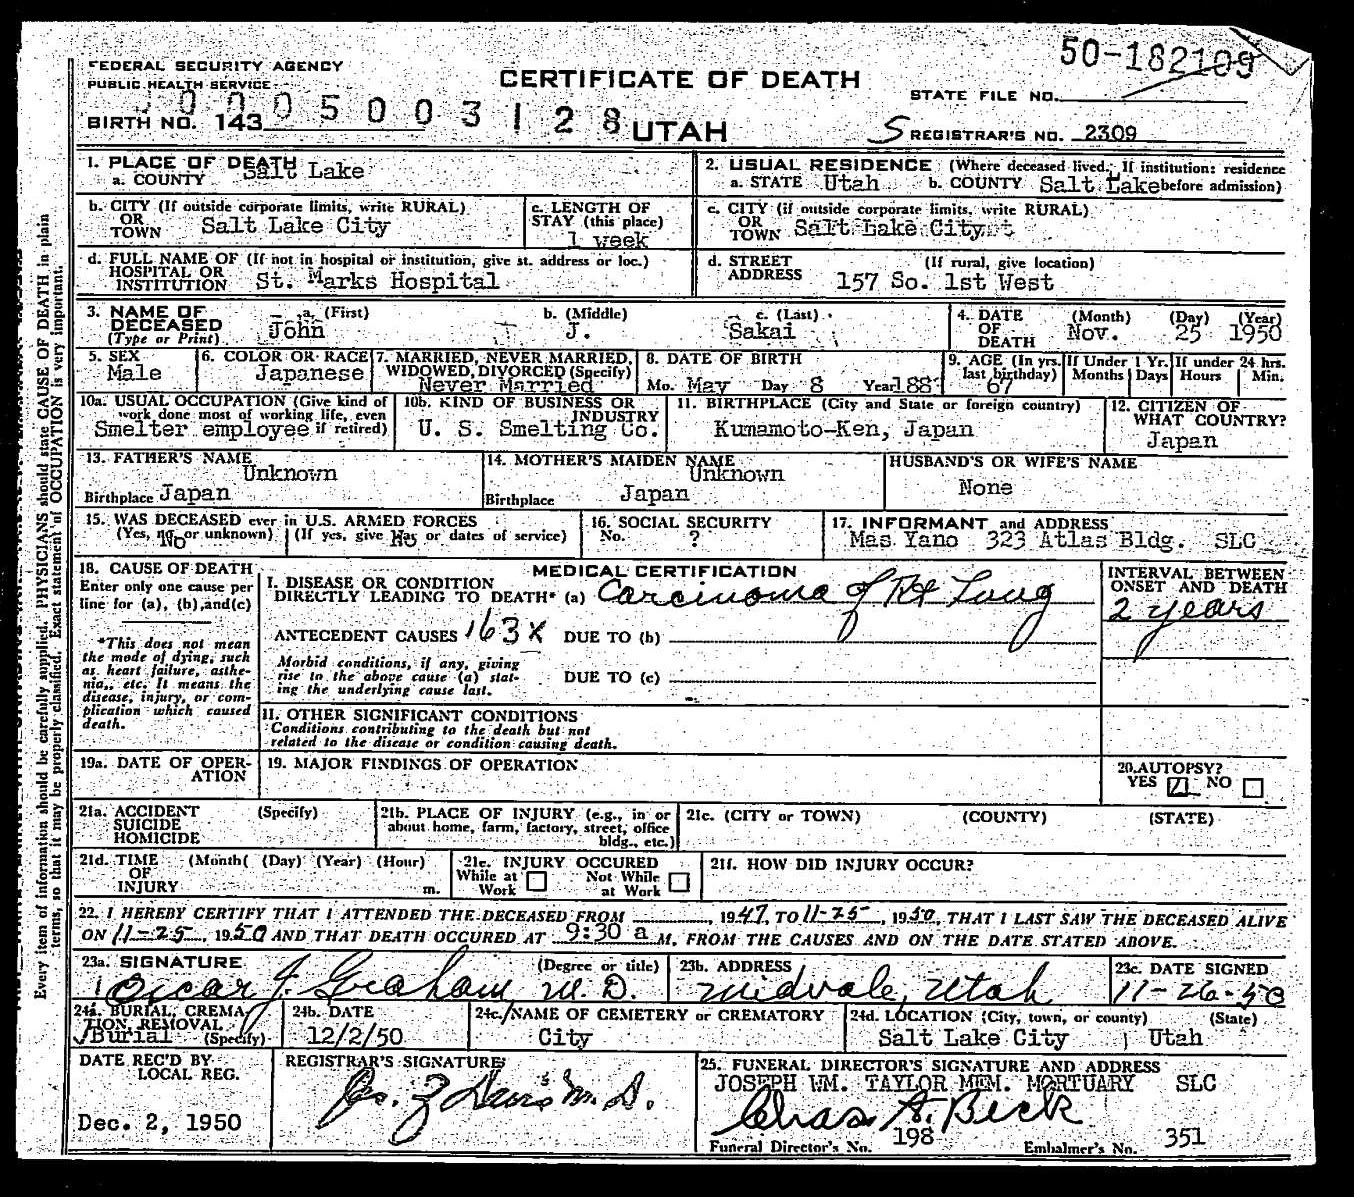 50-182109
FEDERAL SECURITY AGENCY
PUBLIC HEALTH SERVICE
CERTIFICATE OF DEATH
STATE FILE NO.
0005003128
BIRTH NO. 143
UTAH
S REGISTRAR'S NO. 2309
1. PLACE OF DEATH
a. COUNTY Salt Lake
2. USUAL RESIDENCE (Where deceased lived. If institution: residence before admission)
a. STATE Utah b. COUNTY Salt Lake
b. CITY (If outside corporate limits, write RURAL) OR TOWN Salt Lake City
c. LENGTH OF STAY (this place) 1 week
c. CITY (if outside corporate limits, write RURAL) OR TOWN Salt Lake City
d. FULL NAME OF (If not in hospital or institution, give st. address or loc.) HOSPITAL OR INSTITUTION St. Marks Hospital
d. STREET ADDRESS (If rural, give location) 157 So. 1st West
3. NAME OF DECEASED (Type or Print)
a. (First) John
b. (Middle) J.
c. (Last) Sakai
4. DATE OF DEATH (Month) (Day) (Year) Nov. 25 1950
5. SEX Male
6. COLOR OR RACE Japanese
7. MARRIED, NEVER MARRIED, WIDOWED, DIVORCED (Specify) Never Married
8. DATE OF BIRTH Mo. May Day 8 Year 1883
9. AGE (In yrs. last birthday) 67
If Under 1 Yr. Months Days
If under 24 hrs. Hours Min.
10a. USUAL OCCUPATION (Give kind of work done most of working life, even if retired) Smelter employee
10b. KIND OF BUSINESS OR INDUSTRY U. S. Smelting Co.
11. BIRTHPLACE (City and State or foreign country) Kumamoto-Ken, Japan
12. CITIZEN OF WHAT COUNTRY? Japan
13. FATHER'S NAME Unknown
Birthplace Japan
14. MOTHER'S MAIDEN NAME Unknown
Birthplace Japan
HUSBAND'S OR WIFE'S NAME None
15. WAS DECEASED ever in U.S. ARMED FORCES (Yes, no, or unknown) No (If yes, give War or dates of service) No
16. SOCIAL SECURITY No. ?
17. INFORMANT and ADDRESS Mas Yano 323 Atlas Bldg. SLC
18. CAUSE OF DEATH
Enter only one cause per line for (a), (b), and (c)
MEDICAL CERTIFICATION
INTERVAL BETWEEN ONSET AND DEATH
I. DISEASE OR CONDITION DIRECTLY LEADING TO DEATH* (a) Carcinoma of Rt Lung
2 years
*This does not mean the mode of dying, such as heart failure, asthenia, etc. It means the disease, injury, or complication which caused death.
ANTECEDENT CAUSES 163X DUE TO (b)
Morbid conditions, if any, giving rise to the above cause (a) stating the underlying cause last.
DUE TO (c)
II. OTHER SIGNIFICANT CONDITIONS
Conditions contributing to the death but not related to the disease or condition causing death.
19a. DATE OF OPERATION
19. MAJOR FINDINGS OF OPERATION
20. AUTOPSY? YES NO
21a. ACCIDENT SUICIDE HOMICIDE (Specify)
21b. PLACE OF INJURY (e.g., in or about home, farm, factory, street, office bldg., etc.)
21c. (CITY or TOWN) (COUNTY) (STATE)
21d. TIME OF INJURY (Month( (Day) (Year) (Hour) m.
21e. INJURY OCCURED While at Work Not While at Work
21f. HOW DID INJURY OCCUR?
22. I HEREBY CERTIFY THAT I ATTENDED THE DECEASED FROM , 1947, TO 11-25, 1950, THAT I LAST SAW THE DECEASED ALIVE
ON 11-25, 1950 AND THAT DEATH OCCURED AT 9:30 a M. FROM THE CAUSES AND ON THE DATE STATED ABOVE.
23a. SIGNATURE (Degree or title) Oscar J. Graham, M.D.
23b. ADDRESS Midvale, Utah
23c. DATE SIGNED 11-26-50
24a. BURIAL, CREMATION, REMOVAL (Specify) Burial
24b. DATE 12/2/50
24c. NAME OF CEMETERY or CREMATORY City
24d. LOCATION (City, town, or county) (State) Salt Lake City Utah
DATE REC'D BY LOCAL REG. Dec. 2, 1950
REGISTRAR'S SIGNATURE
25. FUNERAL DIRECTOR'S SIGNATURE AND ADDRESS
JOSEPH WM. TAYLOR MEM. MORTUARY SLC
Chas A. Beck
Funeral Director's No. 198 Embalmer's No. 351
Every item of information should be carefully supplied. PHYSICIANS should state CAUSE OF DEATH in plain
terms, so that it may be properly classified. Exact statement of OCCUPATION is very important.